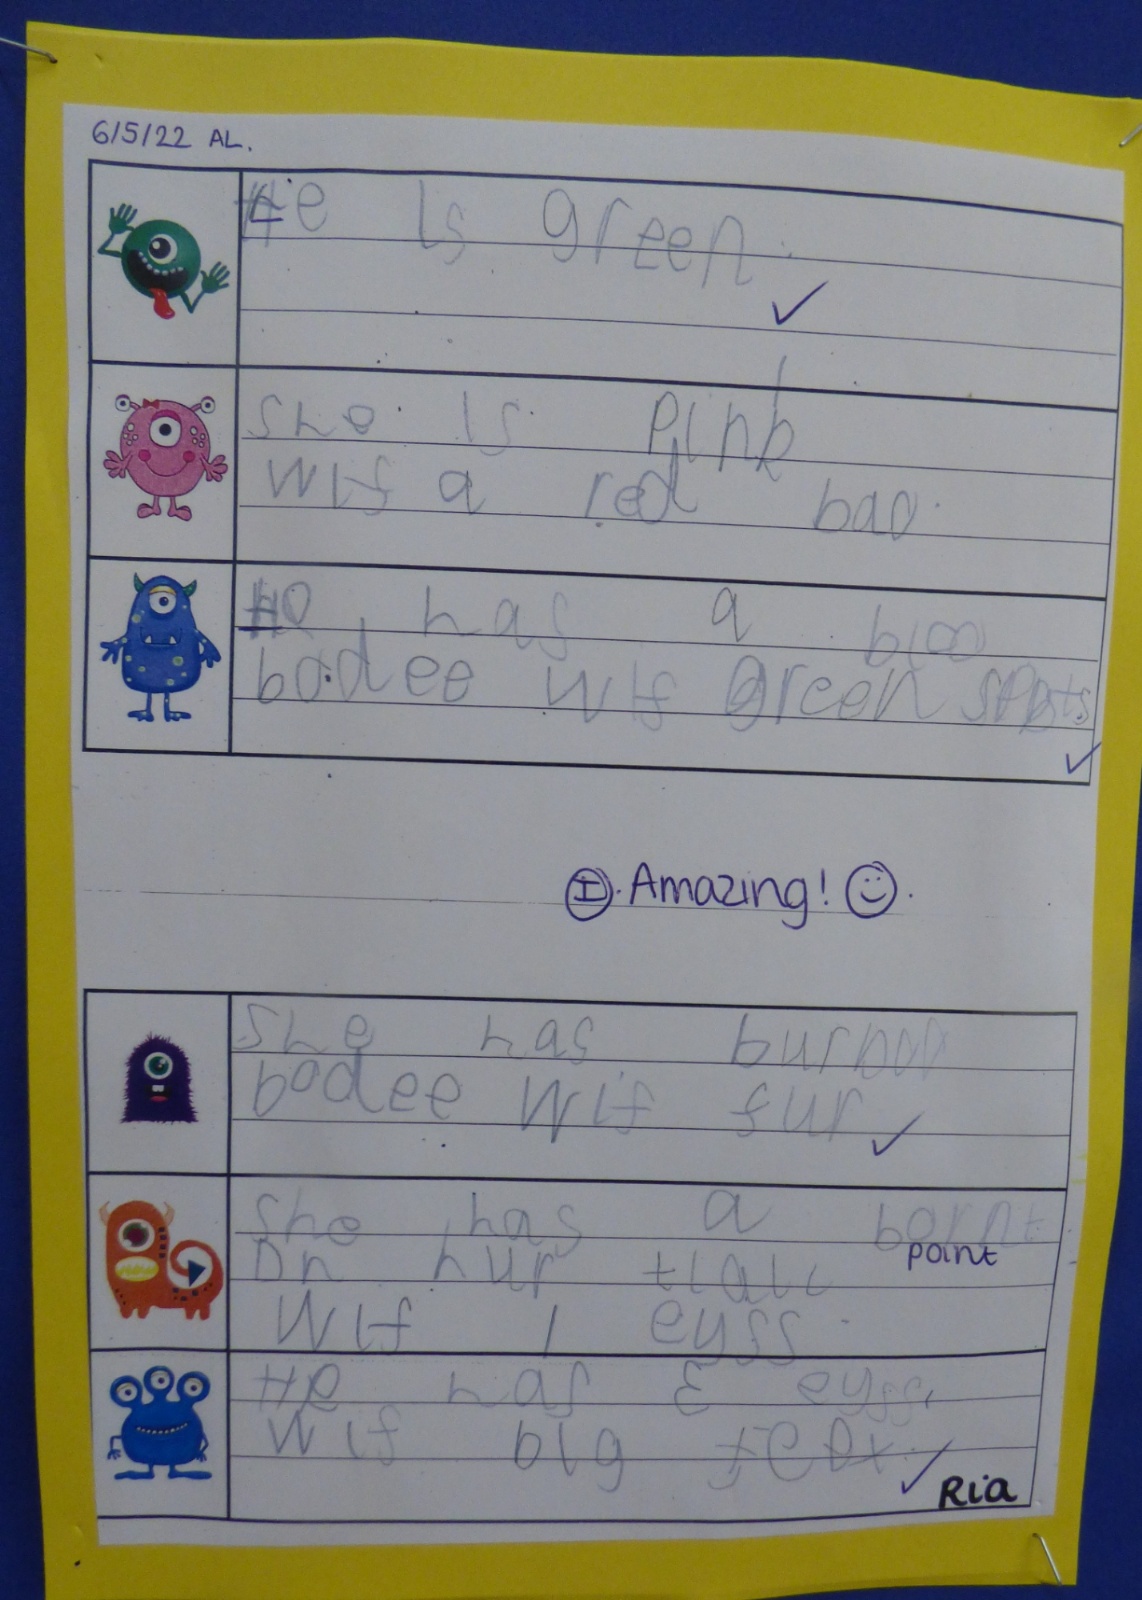 6/5/22 AL.
He is green.
She is Pink
wif a red bao.
He has a bloo
bodee wif green spots
I Amazing!
She has burbol
bodee wif fur
She has a bornt
point
on hur tialc
wif 1 eyss.
He has 3 eyss,
wif big
Ria